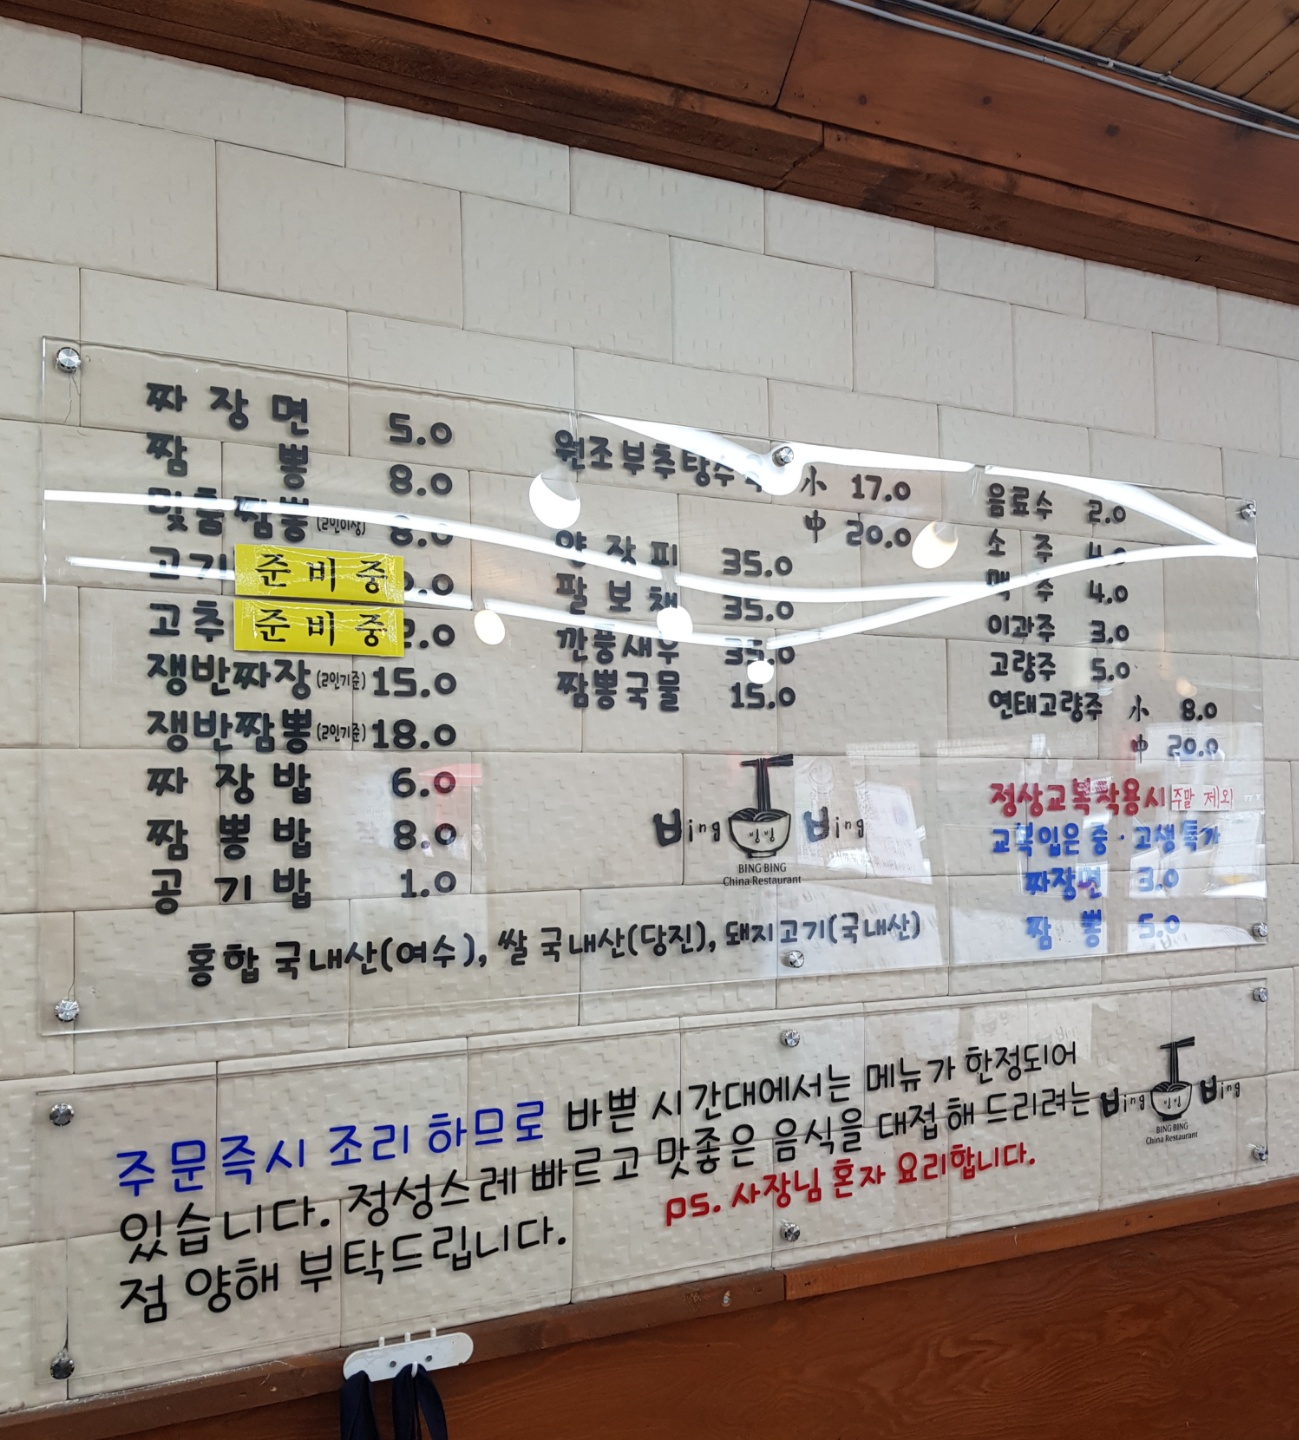 짜장면 5.0
짬뽕 8.0
맞춤짬뽕(2인이상) 8.0
고기 준비중 .0
고추 준비중 2.0
쟁반짜장(2인기준) 15.0
쟁반짬뽕(2인기준) 18.0
짜장밥 6.0
짬뽕밥 8.0
공기밥 1.0
원조부추탕수 小 17.0
中 20.0
양장피 35.0
팔보채 35.0
깐풍새우 35.0
짬뽕국물 15.0
음료수 2.0
소주 4.0
맥주 4.0
이과주 3.0
고량주 5.0
연태고량주 小 8.0
中 20.0
정상교복착용시 주말 제외
교복입은 중·고생특가
짜장면 3.0
짬뽕 5.0
Bing 빙빙 Bing
BING BING
China Restaurant
홍합 국내산(여수), 쌀 국내산(당진), 돼지고기(국내산)
주문즉시 조리 하므로 바쁜 시간대에서는 메뉴가 한정되어
있습니다. 정성스레 빠르고 맛좋은 음식을 대접해 드리려는 Bing 빙빙 Bing
BING BING
China Restaurant
점 양해 부탁드립니다. ps. 사장님 혼자 요리합니다.